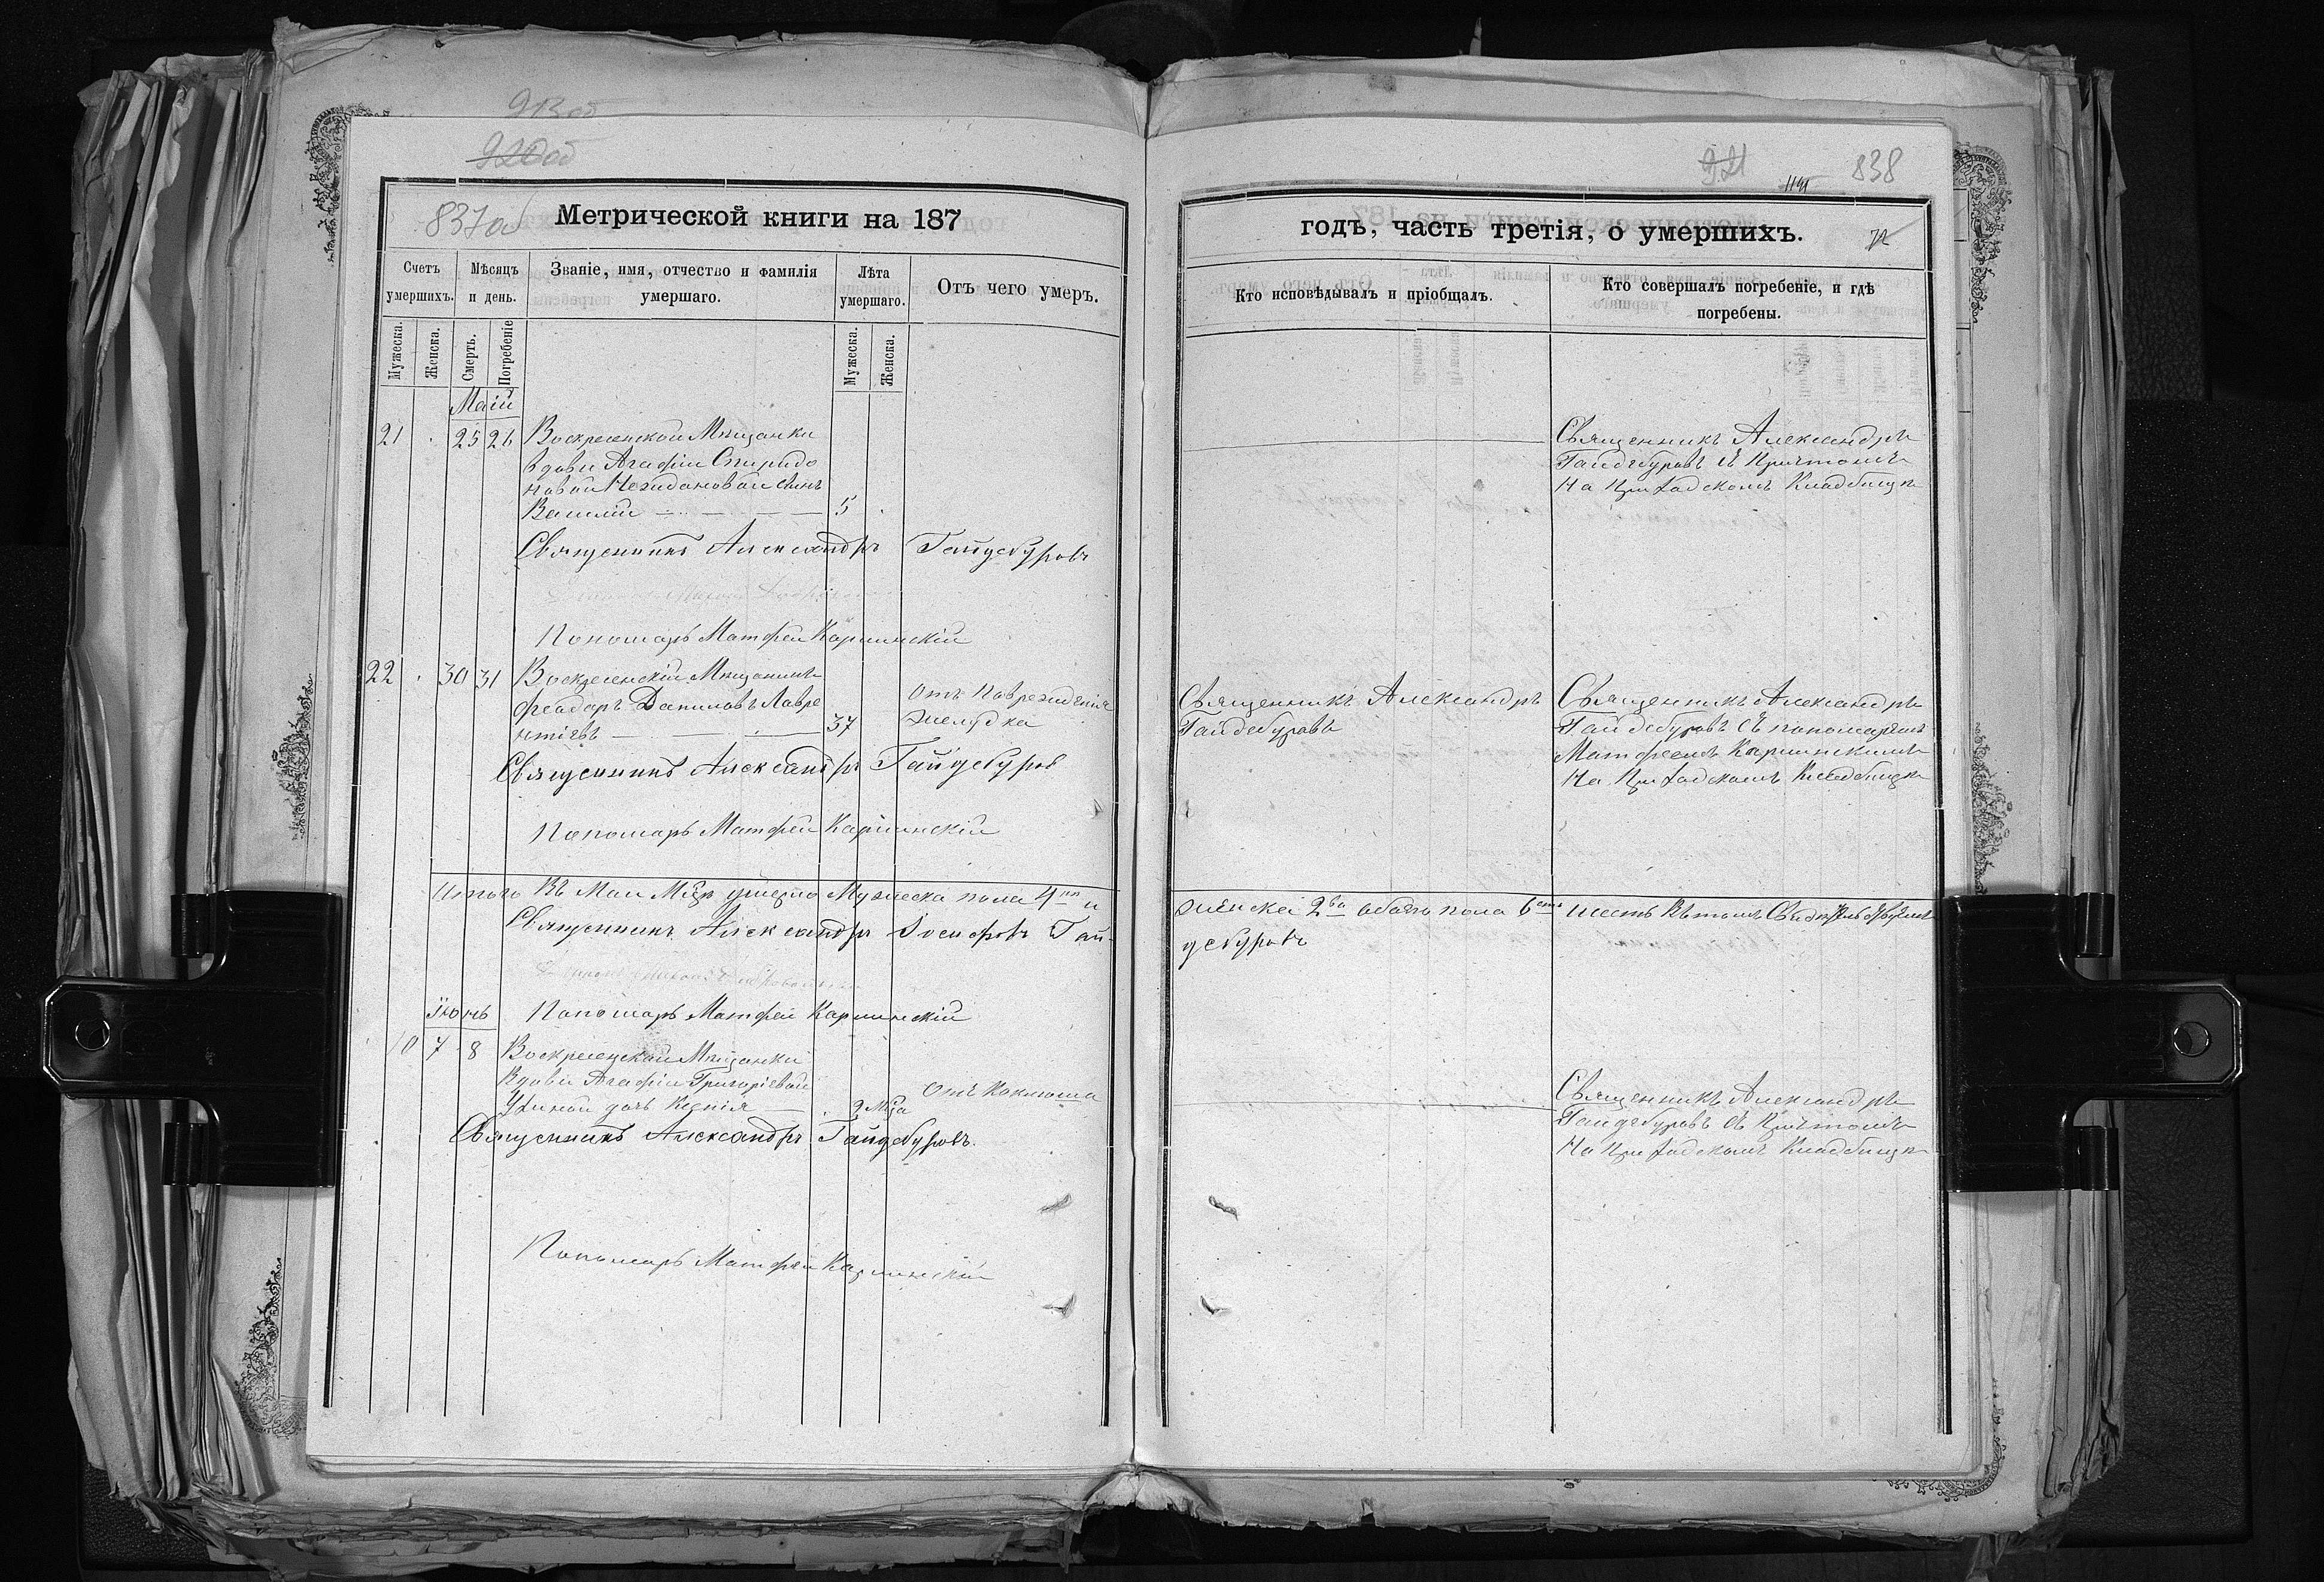 913 об
920 об
837 об
Метрической книги на 187
Счетъ умершихъ.
Мѣсяцъ и день.
Званіе, имя, отчество и фамилія умершаго.
Лѣта умершаго.
Отъ чего умеръ.
Мужеска.
Женска.
Смерть.
Погребеніе
Мужеска.
Женска.
Маій
21 25 26 Воскресенской Мѣщанки
вдовы Агафіи Спиридо
новой сынъ
Василій 5
Священникъ Александръ Гайдебуровъ
Пономарь Матфей Каргинскій
22 30 31 Воскресенскій Мѣщанинъ
Феодоръ Даниловъ Лавре
нтіевъ 37
Отъ поврежденія
желудка
Священникъ Александръ Гайдебуров
Пономарь Матфей Каргинскій
Итого Въ Маи Мцѣ умерло Мужеска пола 4 и
Священникъ Александръ Іосифовъ Гай-
Іюнь Пономарь Матфей Каргинскій
10 7 8 Воскресенской Мѣщанки
Вдовы Агафіи Григорьевой
дочь Ксенія 9 Мца
Отъ Коклюша
Священникъ Александръ Гайдебуровъ.
Пономарь Матфей Каргинскій
921
838
годъ, часть третія, о умершихъ.
72
Кто исповѣдывалъ и пріобщалъ.
Кто совершалъ погребеніе, и гдѣ погребены.
Священникъ Александръ
Гайдебуровъ съ Причтомъ
На приходскомъ Кладбищѣ
Священникъ Александръ
Гайдебуровъ
Священникъ Александръ
Гайдебуровъ съ пономаремъ
Матфеемъ Каргинскимъ
На Приходскомъ Кладбищѣ
женска 2 обоего пола 6 шесть Въ томъ
дебуровъ
Священникъ Александръ
Гайдебуровъ съ Причтомъ
На Приходскомъ Кладбищѣ